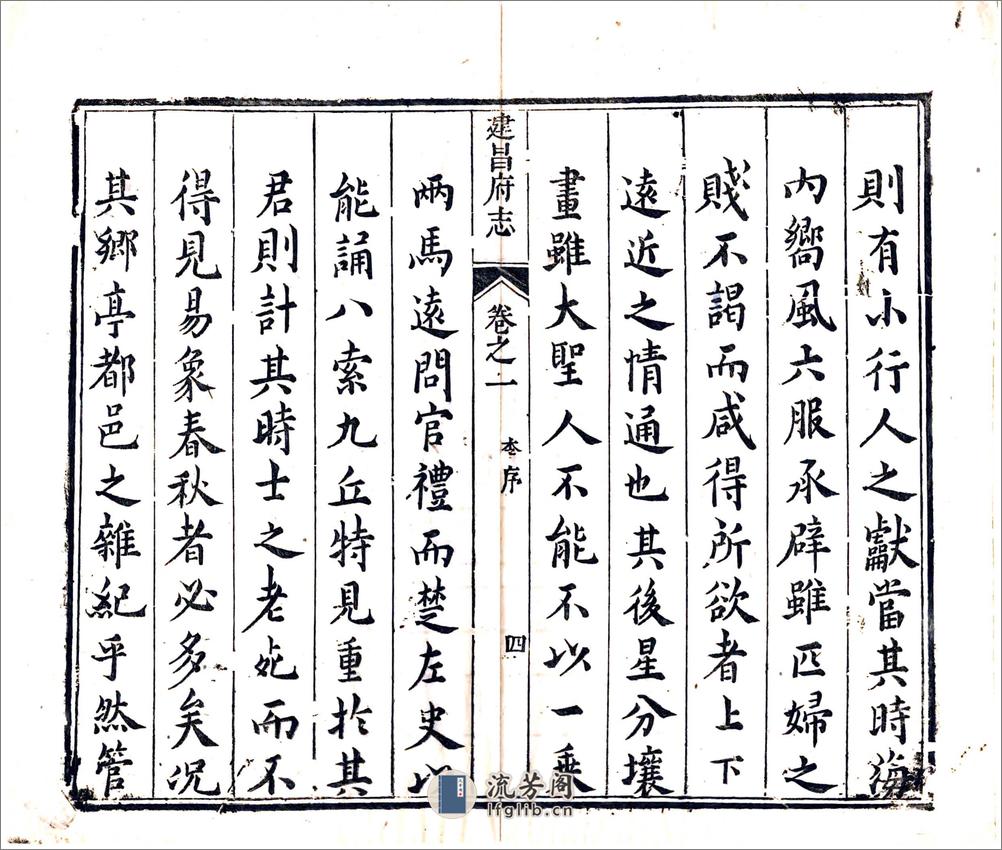 則有小行人之獻當其時海
內嚮風六服承辟雖匹婦之
賤不謁而咸得所欲者上下
遠近之情通也其後星分壤
畫雖大聖人不能不以一乗
建昌府志
卷之一
夲序
四
兩馬遠問官禮而楚左史以
能誦八索九丘特見重於其
君則計其時士之老死而不
得見易象春秋者必多矣况
其鄉亭都邑之雜紀乎然管
流芳阁
lfglib.cn